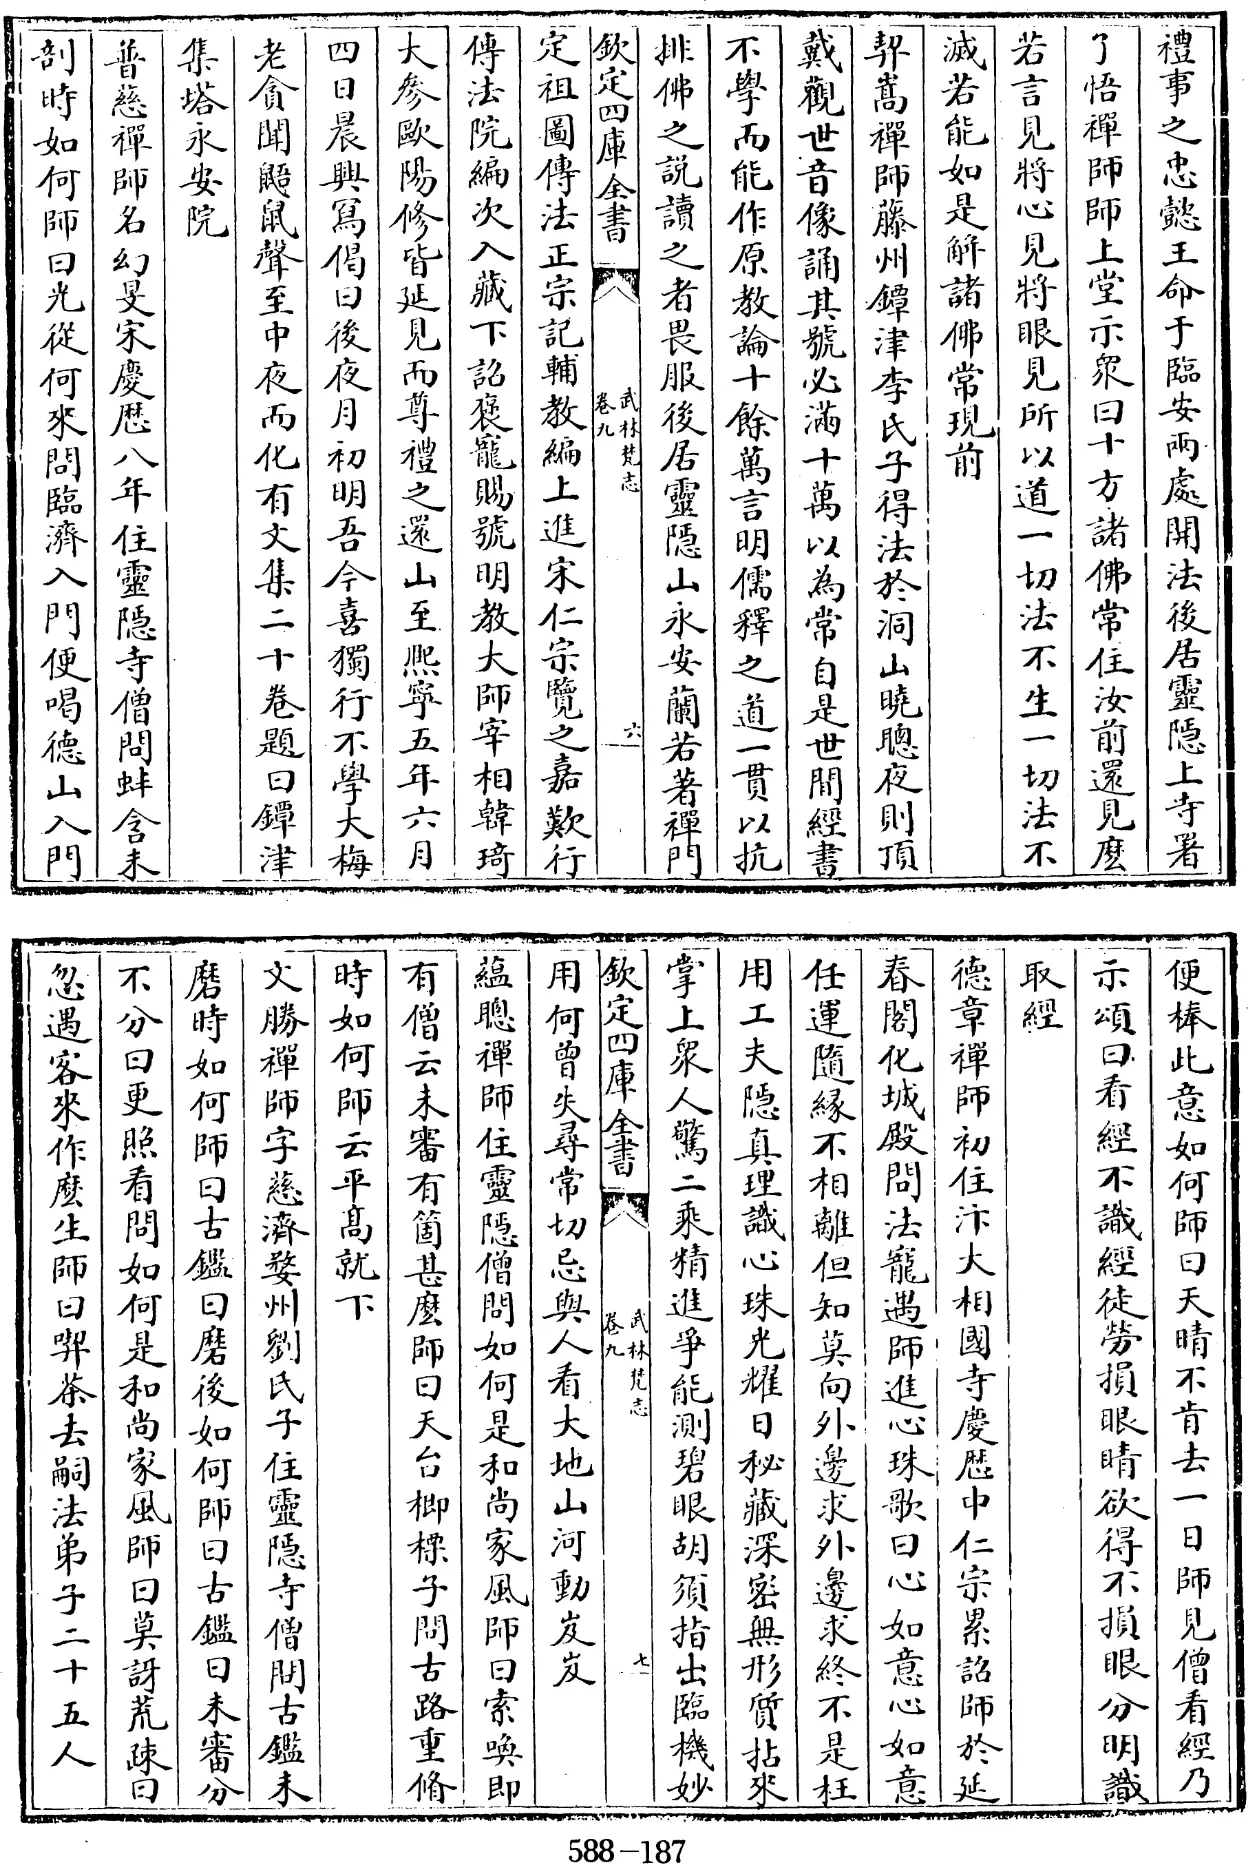 禮事之忠懿王命于臨安兩處開法後居靈隱上寺署
了悟禪師師上堂示衆曰十方諸佛常住汝前還見麽
若言見將心見將眼見所以道一切法不生一切法不
滅若能如是解諸佛常現前
契嵩禪師藤州鐔津李氏子得法於洞山曉聰夜則頂
戴觀世音像誦其號必滿十萬以為常自是世間經書
不學而能作原教論十餘萬言明儒釋之道一貫以抗
排佛之説讀之者畏服後居靈隱山永安蘭若著禪門
欽定四庫全書
武林梵志
卷九
六
定祖圖傳法正宗記輔教編上進宋仁宗覽之嘉歎行
傳法院編次入藏下詔褒寵賜號明教大師宰相韓琦
大參歐陽修皆延見而尊禮之還山至熈寧五年六月
四日晨興寫偈曰後夜月初明吾今喜獨行不學大梅
老貪聞鼯鼠聲至中夜而化有文集二十卷題曰鐔津
集塔永安院
普慈禪師名幻旻宋慶歷八年住靈隱寺僧問蚌含未
剖時如何師曰光從何來問臨濟入門便喝德山入門
便棒此意如何師曰天晴不肯去一日師見僧看經乃
示頌曰看經不識經徒勞損眼睛欲得不損眼分明識
取經
德章禪師初住汴大相國寺慶歷中仁宗累詔師於延
春閣化城殿問法寵遇師進心珠歌曰心如意心如意
任運隨緣不相離但知莫向外邊求外邊求終不是枉
用工夫隱真理識心珠光耀日秘藏深密無形質拈來
掌上衆人驚二乘精進爭能測碧眼胡須指出臨機妙
欽定四庫全書
武林梵志
卷九
七
用何曾失尋常切忌與人看大地山河動岌岌
蘊聰禪師住靈隱僧問如何是和尚家風師曰索喚即
有僧云未審有箇甚麽師曰天台櫛㯶子問古路重脩
時如何師云平髙就下
文勝禪師字慈濟婺州劉氏子住靈隱寺僧問古鑑未
磨時如何師曰古鑑曰磨後如何師曰古鑑曰未審分
不分曰更照看問如何是和尚家風師曰莫訝荒疎曰
忽遇客來作麽生師曰喫茶去嗣法弟子二十五人
588-187